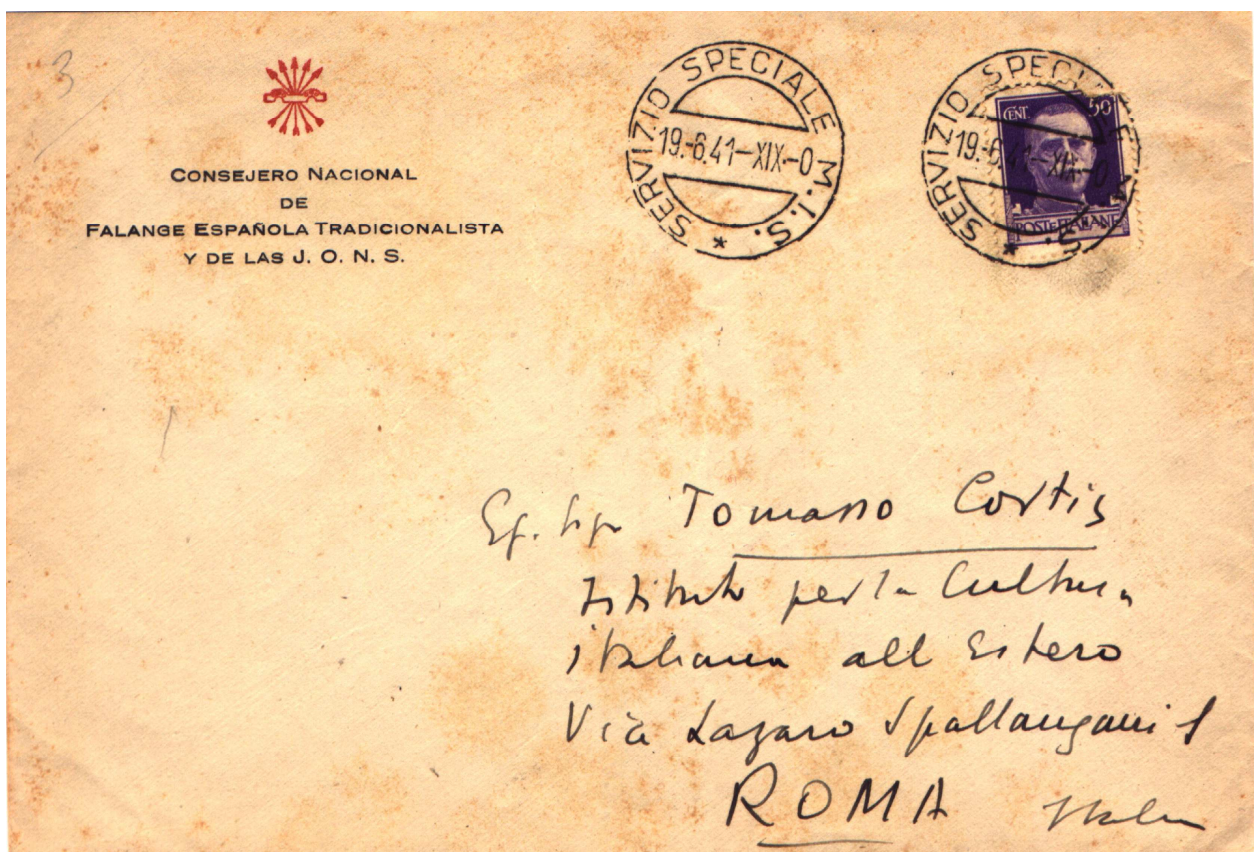 3
CONSEJERO NACIONAL
DE
FALANGE ESPAÑOLA TRADICIONALISTA
Y DE LAS J. O. N. S.
SERVIZIO SPECIALE M.I.S. *
19.-6.41-XIX.-0
SERVIZIO SPECIALE M.I.S. *
19.-6.41-XIX.-0
CENT. 50
POSTE ITALIANE
Eg. Sigr Tomasso Cortis
Istituto per la Cultura
italiana all Estero
Via Lazaro Spallanzani 1
ROMA Italia